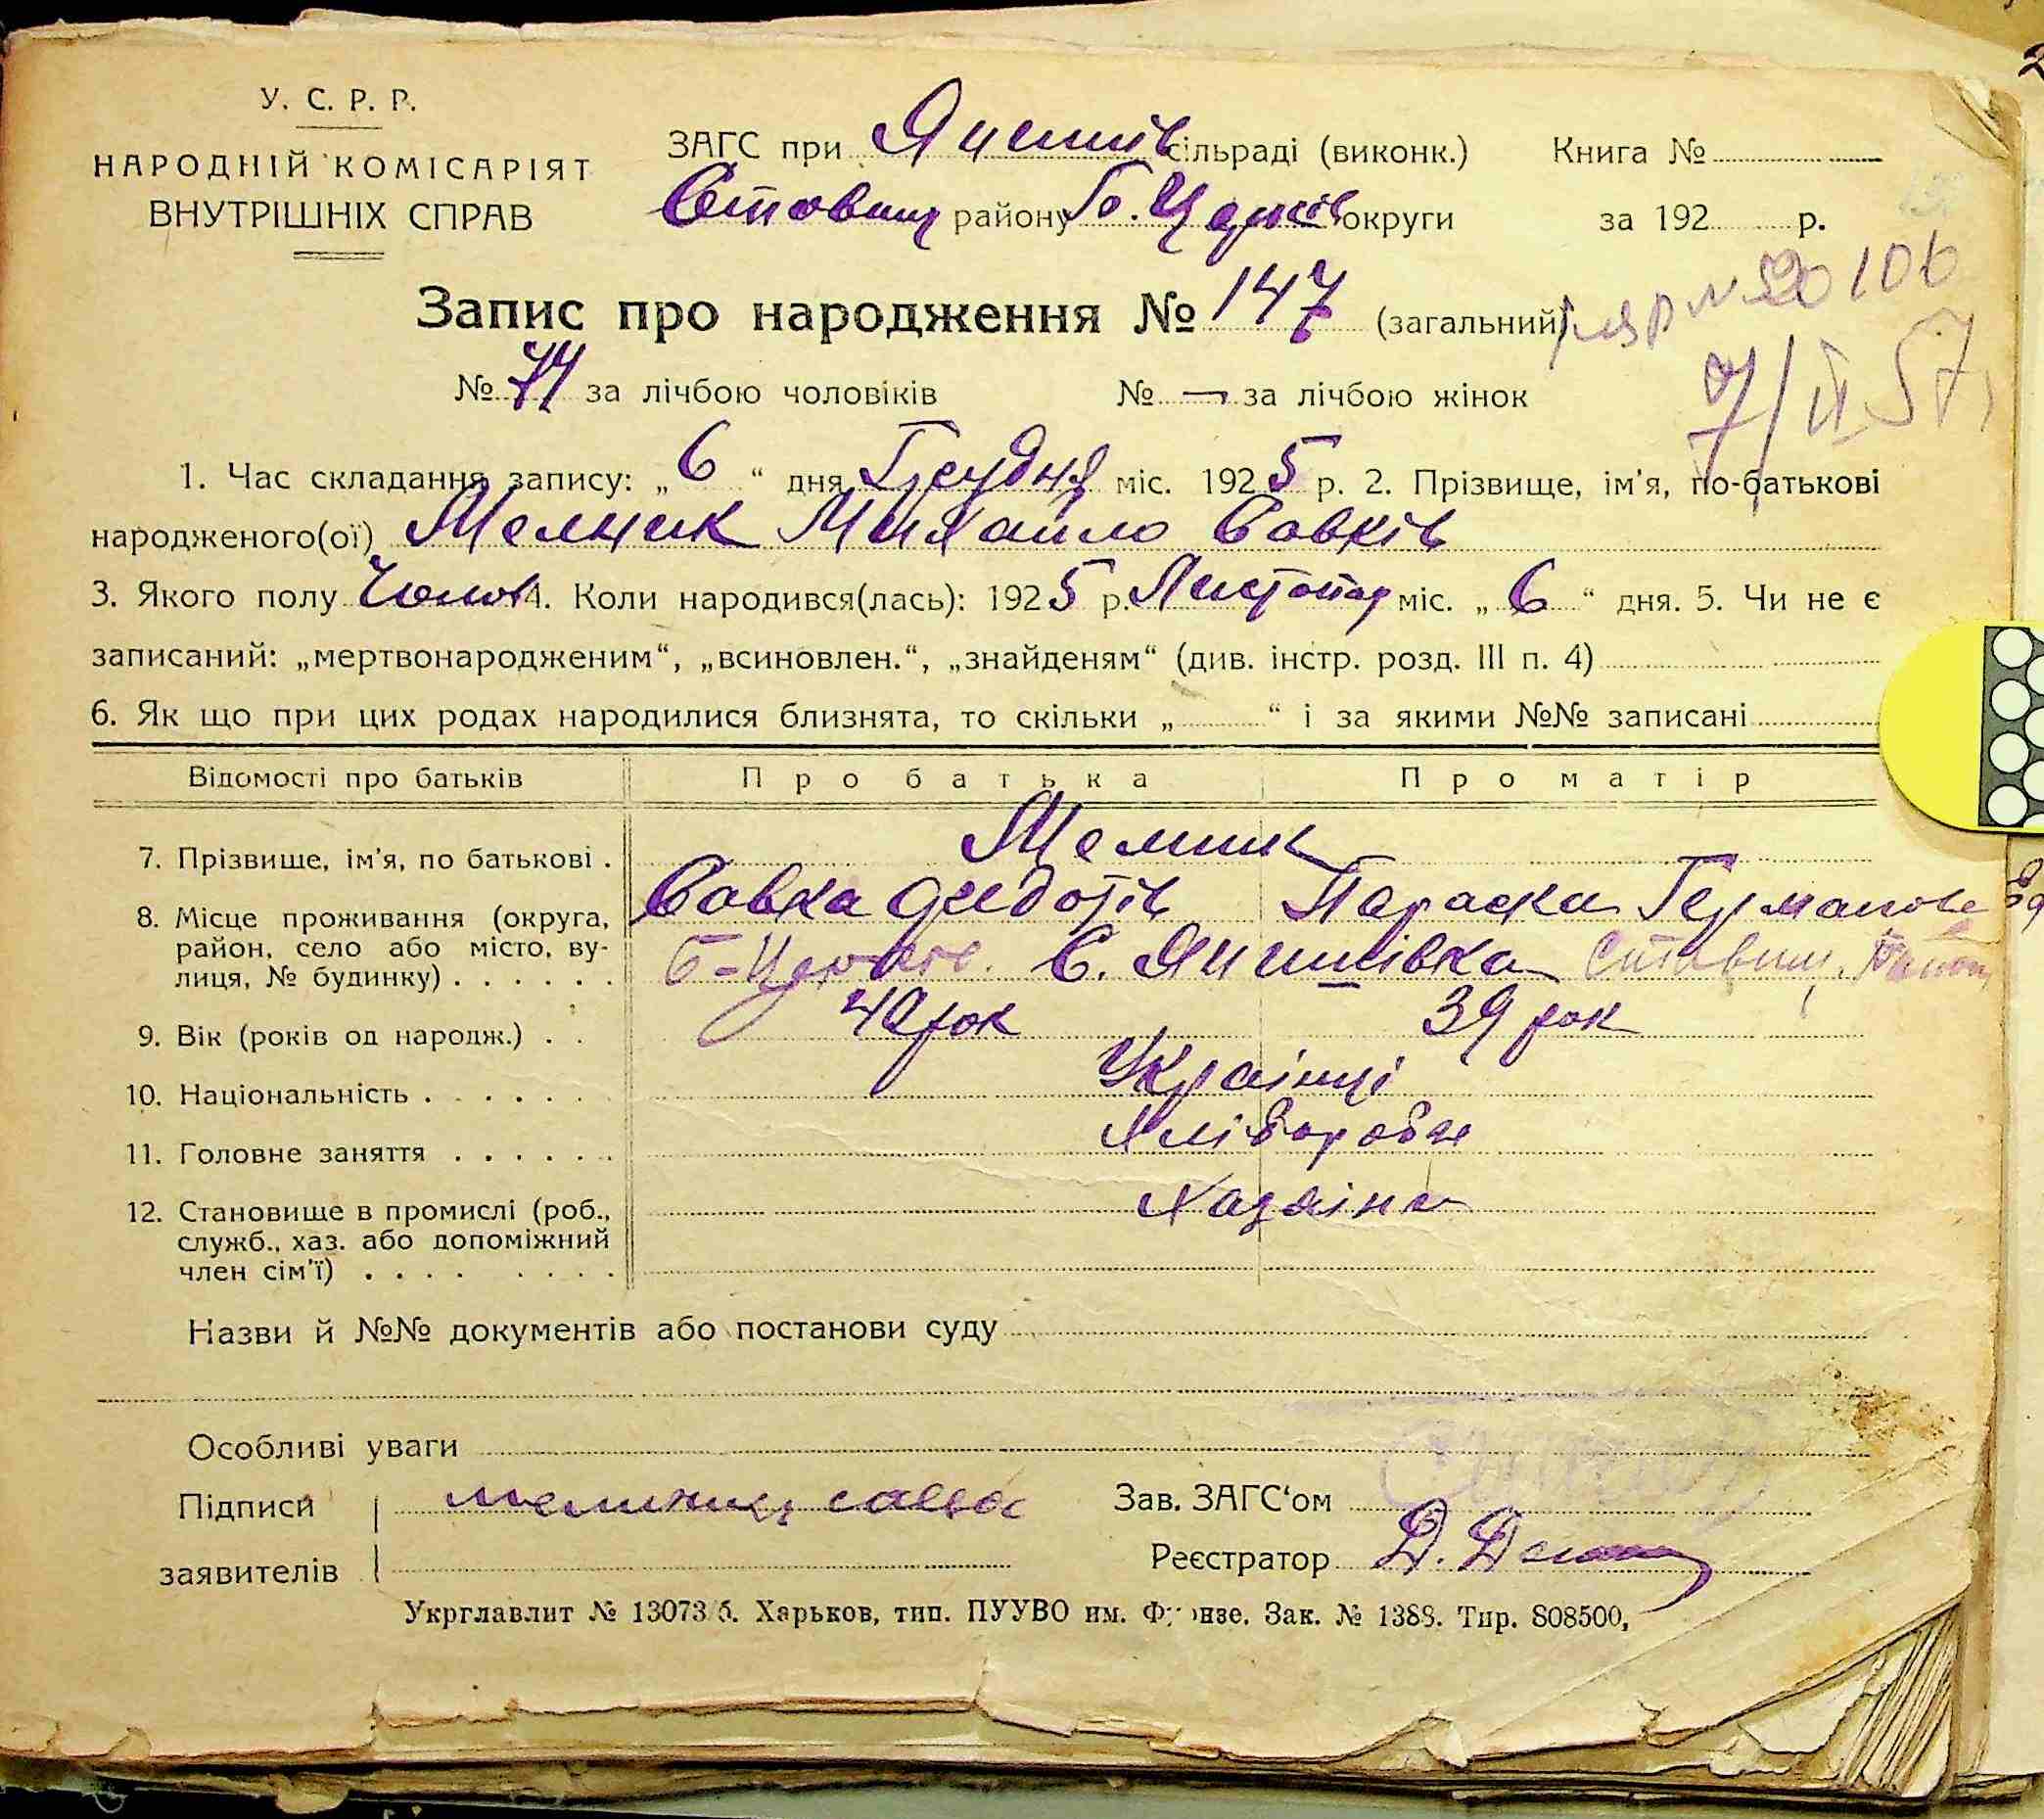 У. С. Р. Р.
НАРОДНІЙ КОМІСАРІЯТ
ВНУТРІШНІХ СПРАВ
ЗАГС при Янишів сільраді (виконк.) Книга №
Ставищ району Б. Церків округи за 192 р.
Запис про народження № 147 (загальний)
№ 20106
7/II 57
№ 74 за лічбою чоловіків № — за лічбою жінок
1. Час складання запису: „6“ дня Грудня міс. 1925 р. 2. Прізвище, ім'я, по-батькові
народженого(ої) Мельник Михайло Савків
3. Якого полу Чолов 4. Коли народився(лась): 1925 р. Листопад міс. „6“ дня. 5. Чи не є
записаний: „мертвонародженим“, „всиновлен.“, „знайденям“ (див. інстр. розд. III п. 4)
6. Як що при цих родах народилися близнята, то скільки „ “ і за якими №№ записані
Відомості про батьків Про батька Про матір
7. Прізвище, ім'я, по батькові . Мелник
Савка Федотів Параска Германова
8. Місце проживання (округа, район, село або місто, вулиця, № будинку) . . . . . . Б-Церків. С. Янишівка Ставищ. Район
9. Вік (років од народж.) . . 40 рок 39 рок
10. Національність . . . . . . . Українці
11. Головне заняття . . . . . . . Хліборобе
12. Становище в промислі (роб., служб., хаз. або допоміжний член сім'ї) . . . . . . . . Хазаіни
Назви й №№ документів або постанови суду
Особливі уваги
Підписи заявителів Зав. ЗАГС‘ом
Реєстратор Д.
Укрглавлит № 13073 б. Харьков, тип. ПУУВО им. Фрунзе. Зак. № 1388. Тир. 808500,